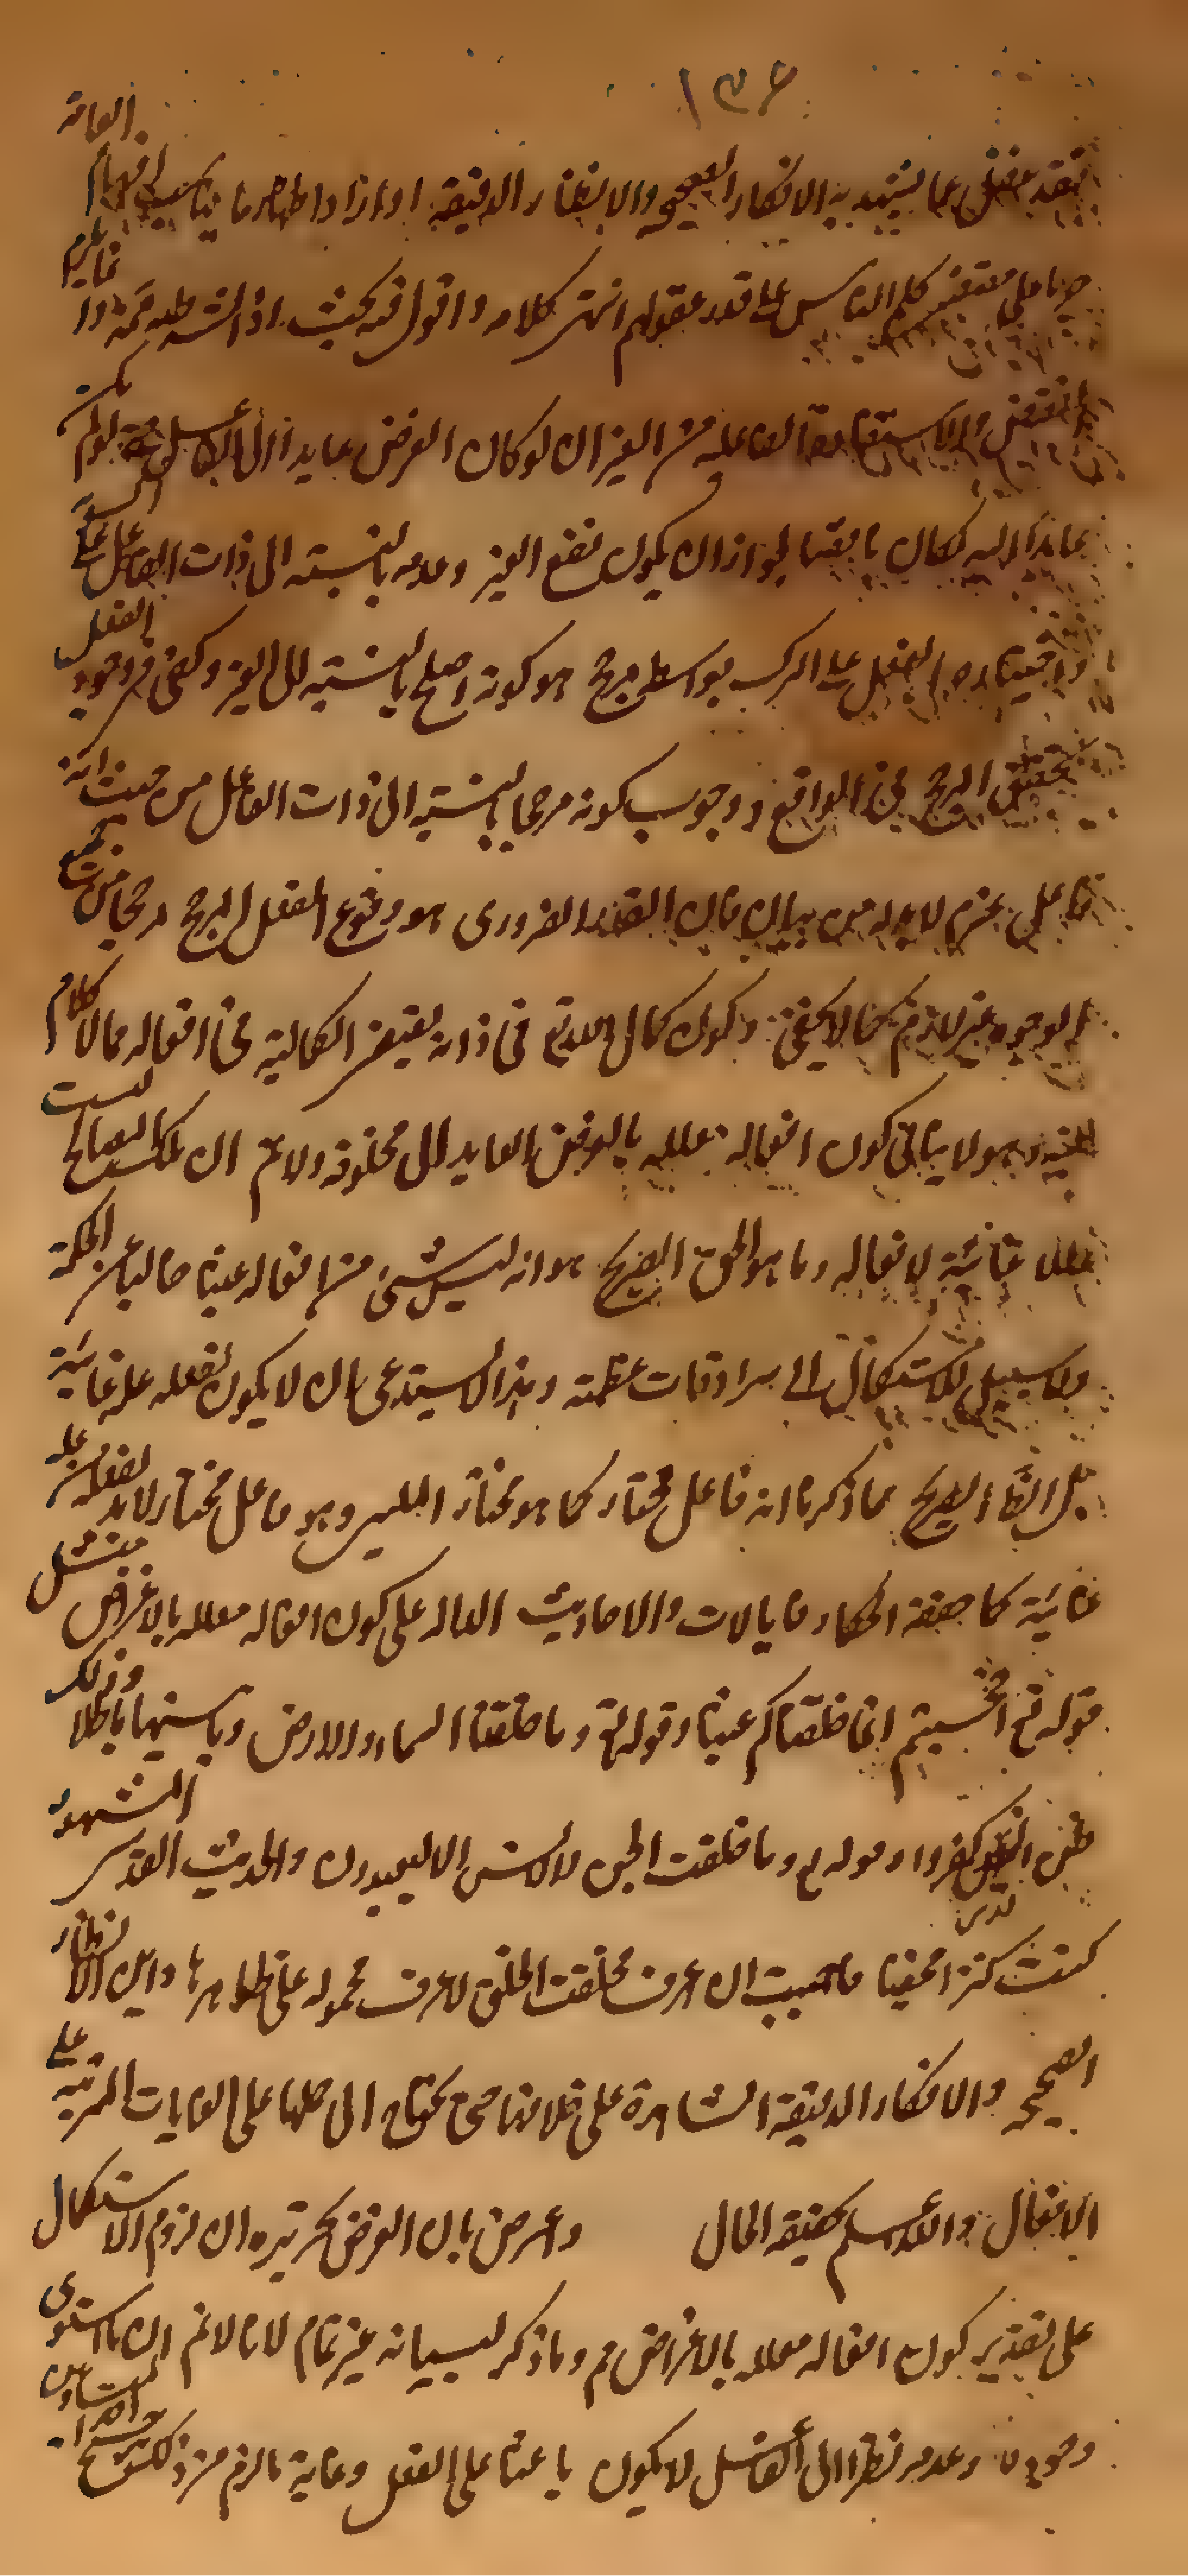 ١٣٦
فقد غفل عما يشهد به الانكار الصحيحه والانظار الدقيقة اواراد اظهار ما يناسب افهام العامة
على مقتضى كلم الناس على قدر عقولهم انتهى كلامه واقول فيه بحث اذ الشرطيه
من الغير ان لو كان الغرض عايدا الى الفاعل لو لم يكن
عايدا اليه لكان ناقصا لجواز ان يكون نفع الغير وعدمه بالنسبة الى ذات الفاعل على السوية
واختياره الفعل على الترك بواسطه مرجح هو كونه اصلح بالنسبة الى الغير وكفى فى وجود الفعل
تحقق المرجح فى الواقع ووجوب كونه مرجحا بالنسبة الى ذات الفاعل من حيث انه
فاعل غير لازم لا بد له من بيان فان القدر الضرورى هو وقوع الفعل المرجح مرجحا من جميع
الوجوه غير لازم كما لا يخفى وكون كمال فى ذاته يقتضى الكمالية فى افعاله مما لا كلام
فيه وهو لا ينافى كون افعاله معلله بالغرض العايد الى مخلوقه ولا نم ان تلك المصالح ليست
عللا غائية لافعاله وما هو الحق الصريح هو انه ليس شئ من افعاله عبثا خاليا عن الحكمة
ولا سبيل للاستكمال الى سرادقات عظمته وهذا لا يستدعى ان لا يكون لفعله علة غائية
بل الصريح ما ذكرنا انه فاعل مختار كما هو مختار المليين وهو فاعل مختار لا بد لفعله من علة
غائية كما حققه الحكماء فالايات والاحاديث الداله على كون افعاله معلله بالاغراض مثل
قوله تع افحسبتم انما خلقناكم عبثا وقوله تع وما خلقنا السماء والارض وما بينهما باطلا وذلك
ظن الذين كفروا وقوله تع وما خلقت الجن والانس الا ليعبدون والحديث القدسى المشهور
كنت كنزا مخفيا فاحببت ان اعرف فخلقت الخلق لاعرف محمولة على ظواهرها واين الانظار
الصحيحه والافكار الدقيقة الشاهدة على خلافها حتى يحتاج الى حملها على الغايات المترتبة على
الافعال والله اعلم بحقيقة الحال واعترض بان الغرض تحريره ان لزوم الاستكمال
على تقدير كون افعاله معلله بالاغراض مم وما ذكر لبيانه غير تمام لانا لا نم ان ما استوى
وجوده وعدمه نظرا الى الفاعل لا يكون باعثا على الفعل وغاية ما لزم من ذلك ترجيح احد المتساويين